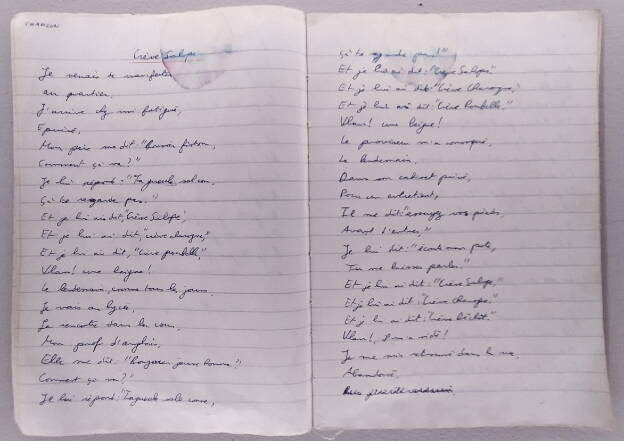 CHANSON
Crève Salope
Je venais de manifester
au quartier,
J'arrive chez moi fatigué,
Epuisé,
Mon père me dit: "Bonsoir fiston,
Comment ça va?"
Je lui répond: "Ta gueule sale con,
Ça te regarde pas."
Et je lui ai dit, "Crève Salope",
Et je lui ai dit, "crève charogne",
Et je lui ai dit, "Crève poubelle",
Vlan! une beigne!
Le lendemain, comme tous les jours
Je vais au lycée,
Je rencontre dans la cour,
Mon prof d'anglais,
Elle me dit: "Bonjour jeune homme!
Comment ça va?"
Je lui répond: "Ta gueule sale conne,
Ça te regarde pas!"
Et je lui ai dit: "Crève Salope",
Et je lui ai dit: "Crève Charogne",
Et je lui ai dit: "Crève Poubelle,"
Vlan! une beigne!
Le proviseur m'a convoqué,
Le lendemain,
Dans son cabinet privé,
Pour un entretient,
Il me dit "essuyez vos pieds,
Avant d'entrer,"
Je lui dit: "écoute mon pote,
Tu me laisses parler."
Et je lui ai dit: "Crève Salope,"
Et je lui ai dit: "Crève Charogne."
Et je lui ai dit: "Crève
Vlan!, Il m'a viré!
Je me suis retrouvé dans la rue,
Abandonné,